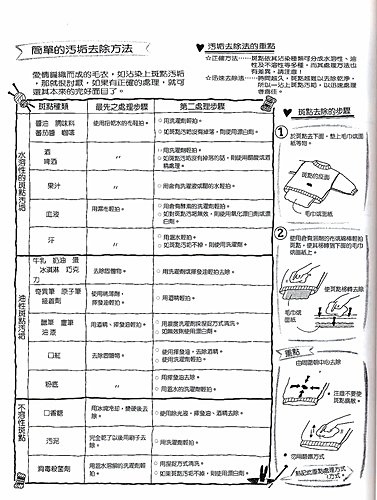 簡單的污垢去除方法
愛情編織而成的毛衣，如沾染上斑點污垢
，那就很討厭，如果有正確的處理，就可
還其本來的完好面目了。
污垢去除法的重點
☆正確方法……污垢依其沾染種類可分成水溶性、油
性及不溶性等多種，而其處理方法也
有差異，請注意！
☆迅速去除法……時間越久，斑點越難以去除乾淨，
所以一沾上斑點污垢，以迅速處理
會尚佳。
斑點種類 最先之處理步驟 第二處理步驟
水溶性的斑點污垢
醬油 調味料
番茄醬 咖啡
使用扭乾水的毛輕拍。
○用洗濯劑輕拍。
○如斑點污垢沒有掉落，則使用漂白劑。
酒
啤酒
〃
○用洗濯劑輕拍。
○如斑點污垢沒有掉落的話，則使用醋酸或酒
精處理。
果汁
〃
○用含有洗濯液或醋的水輕拍。
血液
用濕布輕拍。
○用含有酵素的洗濯劑輕拍。
○如對斑點污垢無效，則使用氧化漂白劑或漂
白劑。
汗
〃
○用溫水輕拍。
○如斑點污垢不掉，則使用洗濯劑。
油性斑點污垢
牛乳 奶油 蛋
冰淇淋 巧克
力
去除固體物。
○用洗濯劑或揮發油輕拍去除。
奇異筆 原子筆
接着劑
使用除薄劑、
揮發油輕拍。
○用酒精輕拍。
蠟筆 畫筆
油漆
用酒精、揮發油輕拍。
○用濃度洗濯劑採捏捉方式清洗。
○如無效則使用漂白劑。
口紅
去除固體物。
○使用揮發油，去除酒精。
○使用洗濯劑輕拍。
粉底
〃
○用揮發油去除。
○用溫水的洗濯劑輕拍。
不溶性斑點
口香糖
用冰塊冷却，變硬後去
除。
○使用除光液、揮發油、酒精去除。
污泥
完全乾了以後用刷子去
除。
○用洗濯劑輕拍。
消毒殺菌劑
用溫水溶解的洗濯劑輕
拍。
○用捏捉方式清洗。
○如果斑點污垢不掉，則使用漂白劑。
斑點去除的步驟
①
於斑點去下面，墊上毛巾或面
紙等物。
斑點的反面
毛巾或面紙
②
使用含有溶劑的布或綿棒輕拍
斑點，使其移轉到下面的毛巾
或面紙上。
使斑點移轉去除
毛巾或
面紙
重點
由周圍朝中心去除
○注意不要使
斑點擴散。
○勿用搓擦方式